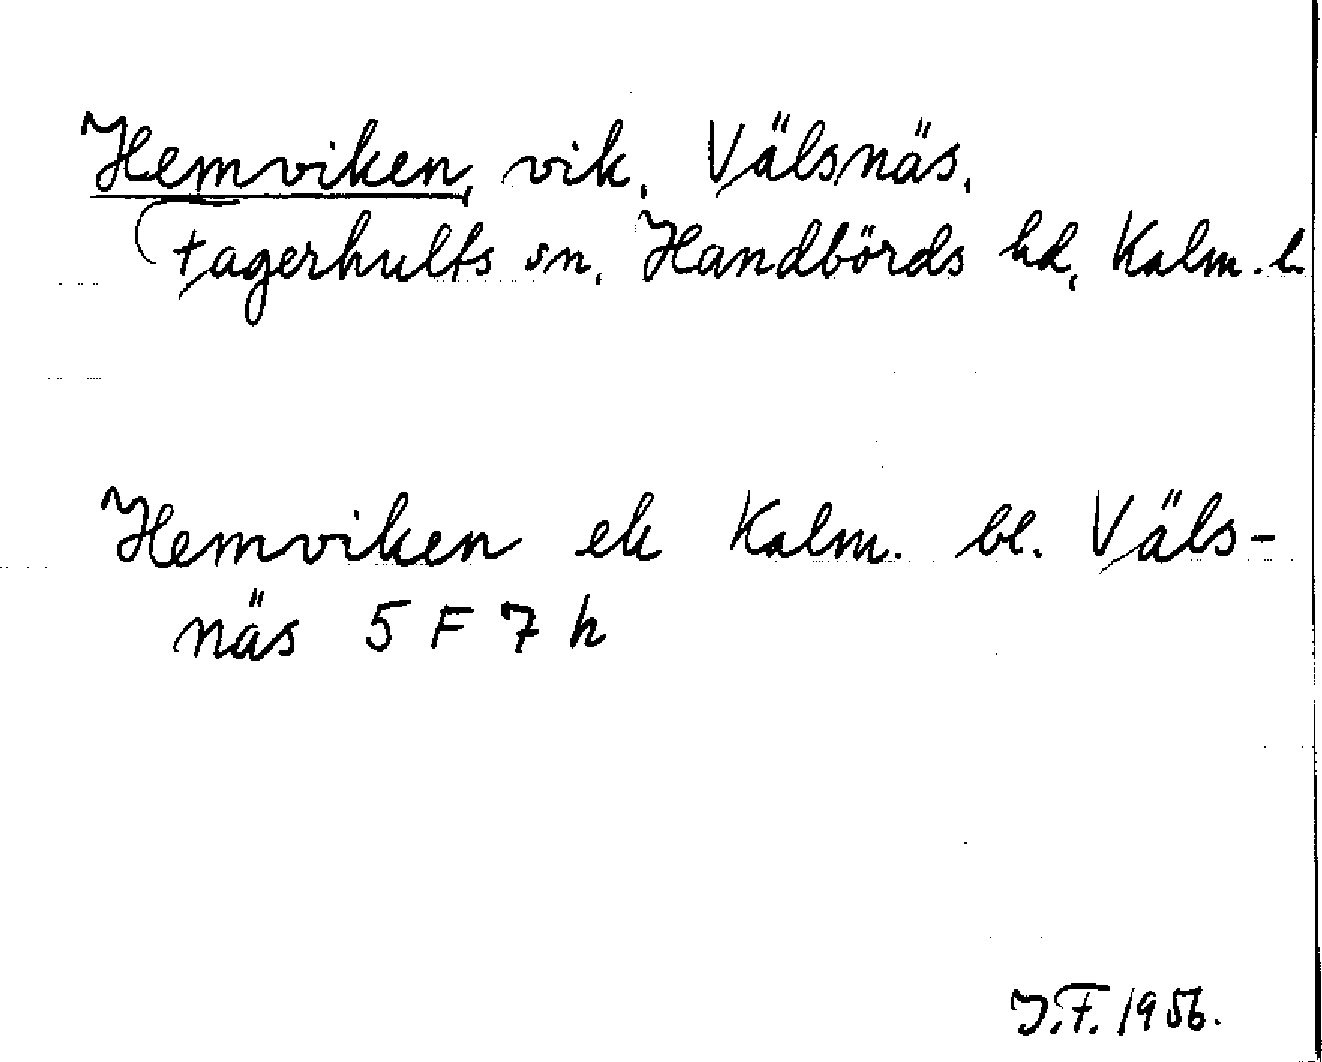 Hemviken, vik, Välsnäs,
Fagerhults sn, Handbörds hd, Kalm. l.
Hemviken ek Kalm. bl. Väls-
näs 5 F 7 h
J.F. 1956.